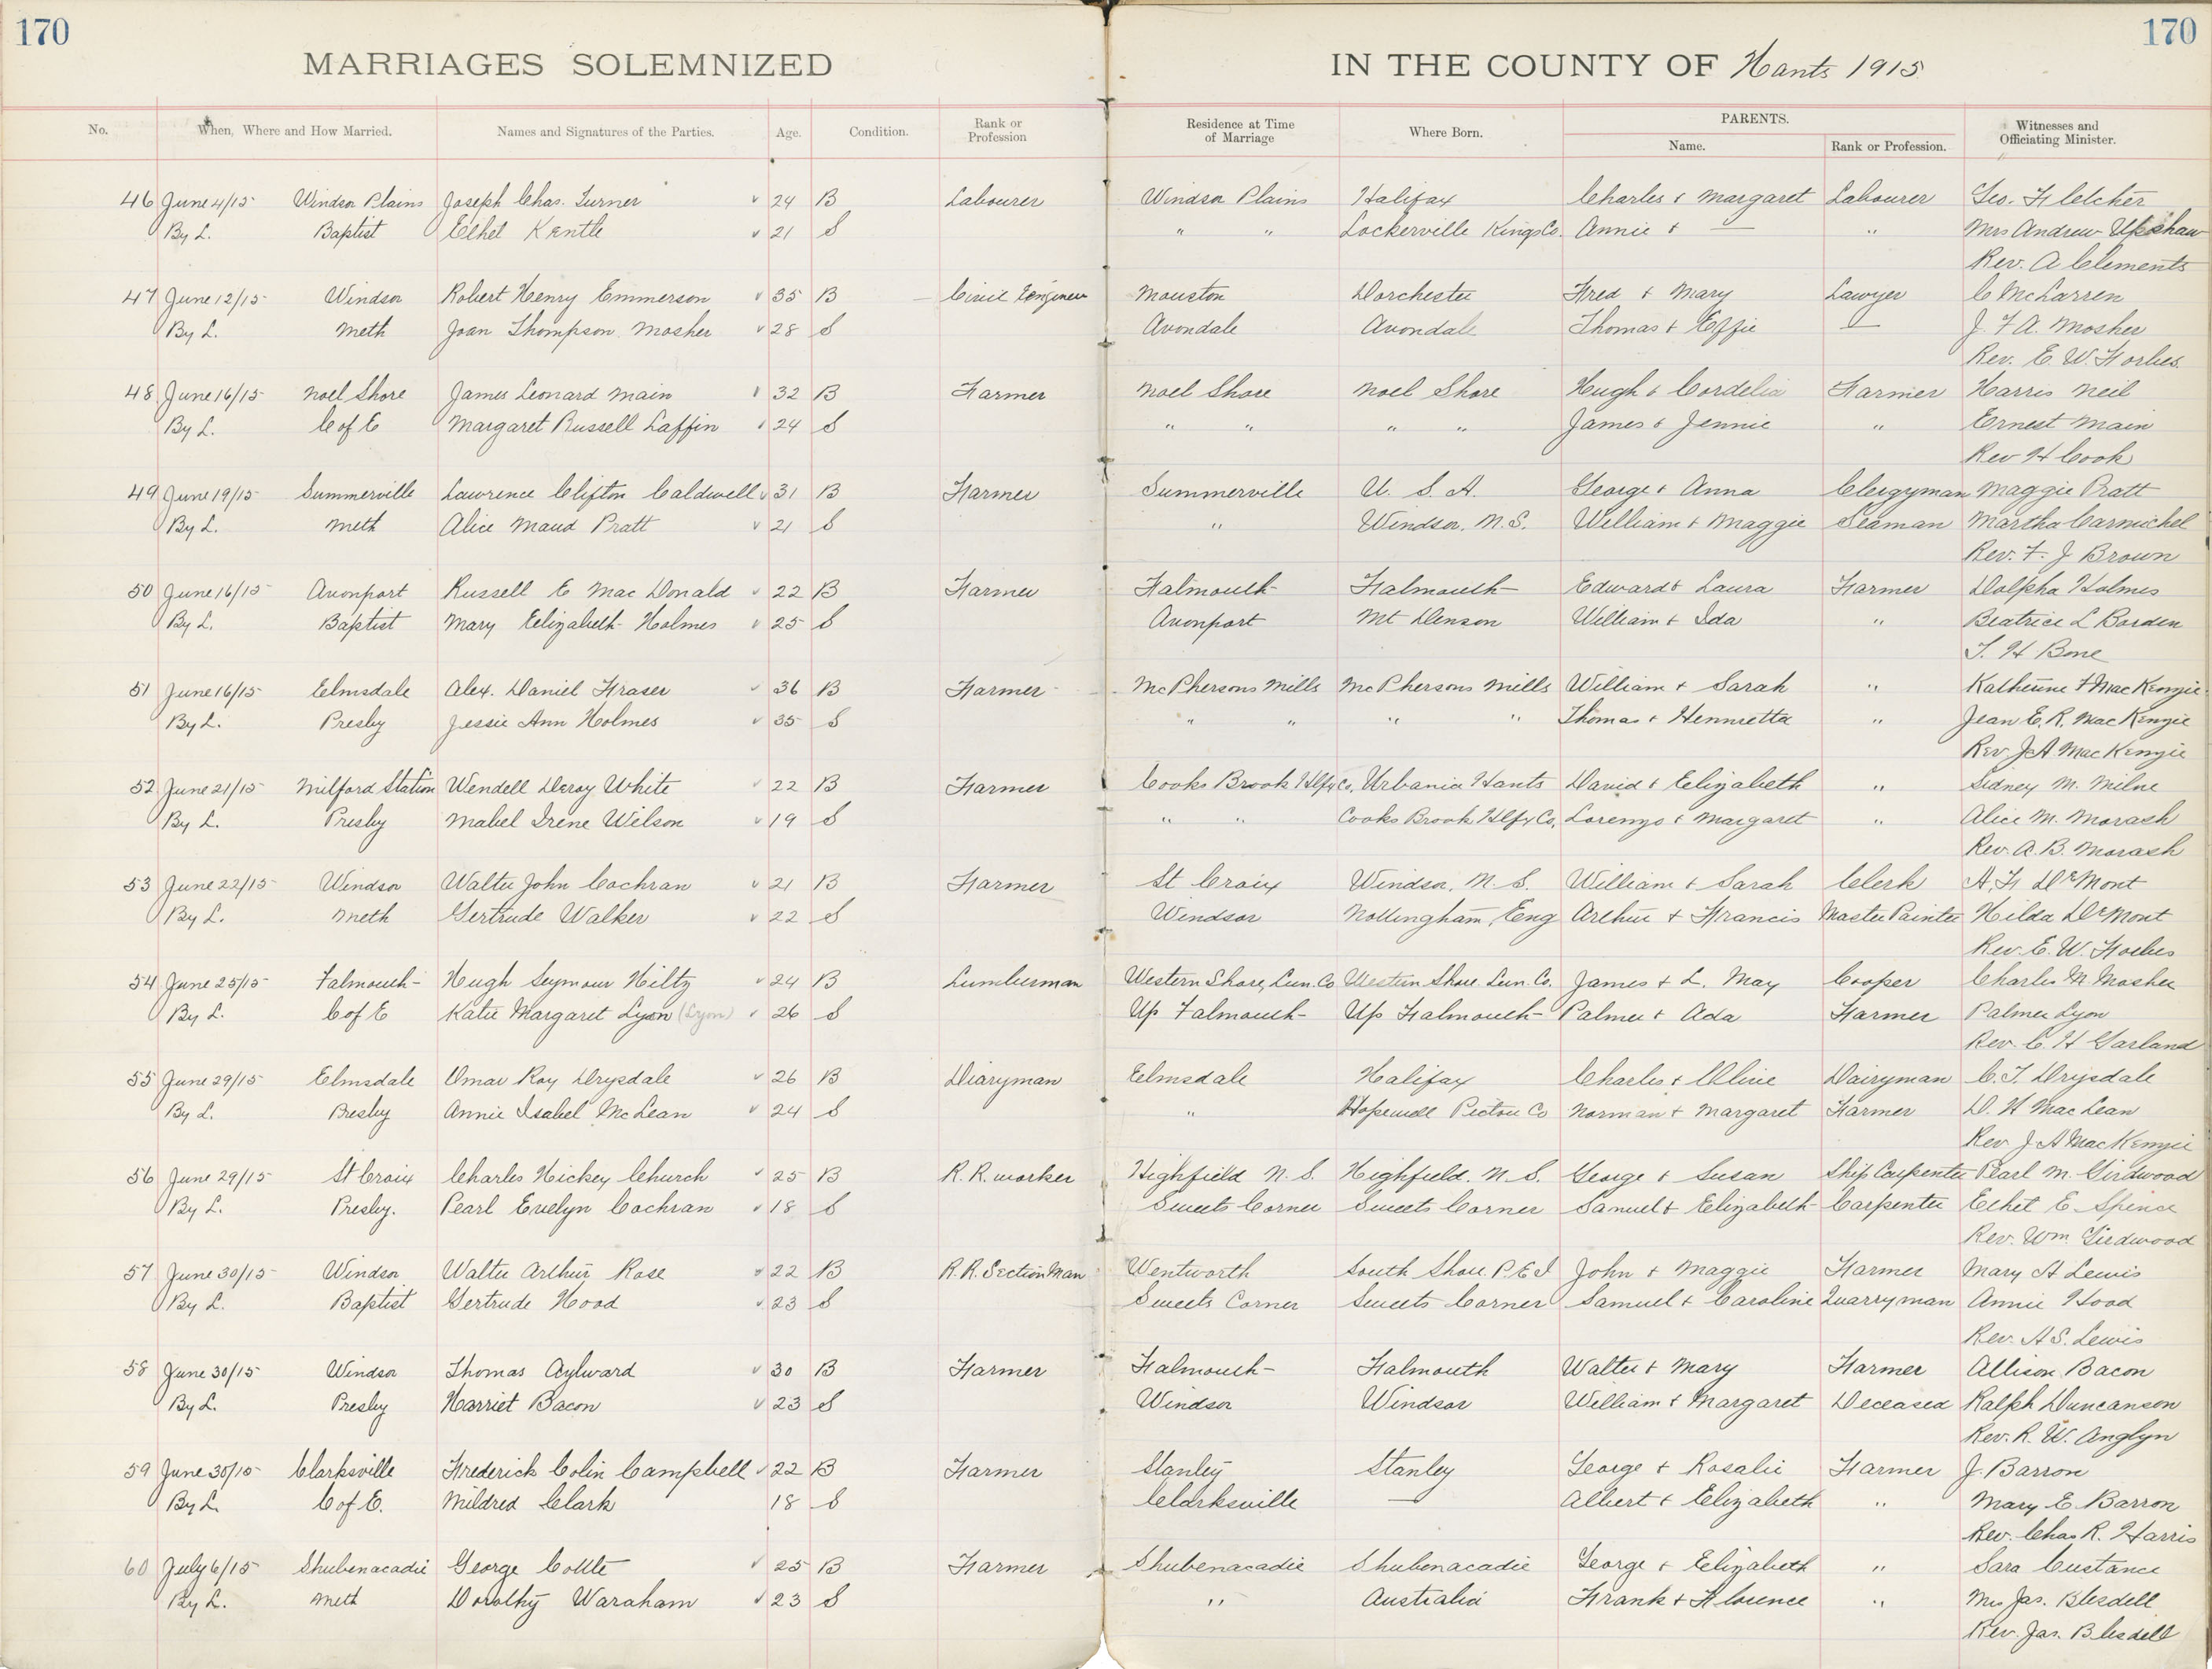 170
170
MARRIAGES SOLEMNIZED
IN THE COUNTY OF Hants 1915
No. When, Where and How Married. Names and Signatures of the Parties. Age. Condition. Rank or Profession Residence at Time of Marriage Where Born. PARENTS. Name. Rank or Profession. Witnesses and Officiating Minister.
46 June 4/15 Windsor Plains Joseph Chas. Turner 24 B Labourer Windsor Plains Halifax Charles & Margaret Labourer Geo. Fletcher
By L. Baptist Ethel Kentle 21 S " " Lockerville Kings Co. Annie & — " Mrs Andrew Upshaw
Rev. A Clements
47 June 12/15 Windsor Robert Henry Emmerson 35 B Civil Engineer Mouston Dorchester Fred & Mary Lawyer C McLarren
By L. Meth Joan Thompson Mosher 28 S Avondale Avondale Thomas & Effie — J. F A. Mosher
Rev. E. W. Forbes.
48 June 16/15 Noel Shore James Leonard Main 32 B Farmer Noel Shore Noel Shore Hugh & Cordelia Farmer Harris Neil
By L. C of E Margaret Russell Laffin 24 S " " " " James & Jennie " Ernest Main
Rev H Cook
49 June 19/15 Summerville Lawrence Clifton Caldwell 31 B Farmer Summerville U. S. A. George & Anna Clergyman Maggie Pratt
By L. Meth Alice Maud Pratt 21 S " Windsor, N.S. William & Maggie Seaman Martha Carmichel
Rev. F. J Brown
50 June 16/15 Avonport Russell E Mac Donald 22 B Farmer Falmouth Falmouth Edward & Laura Farmer Dolpha Holmes
By L. Baptist Mary Elizabeth Holmes 25 S Avonport Mt Denson William & Ida " Beatrice L Borden
T. H Bone
51 June 16/15 Elmsdale Alex. Daniel Fraser 36 B Farmer McPhersons Mills McPhersons Mills William & Sarah " Katherine F MacKenzie
By L. Presby Jessie Ann Holmes 35 S " " " " Thomas & Hennietta " Jean E. R. MacKenzie
Rev J A MacKenzie
52 June 21/15 Milford Station Wendell Deroy White 22 B Farmer Cooks Brook Hlfx Co, Urbania Hants David & Elizabeth " Sidney M. Milne
By L. Presby Mabel Irene Wilson 19 S " " Cooks Brook Hlfx Co, Lorenzo & Margaret " Alice M. Morash
Rev. A. B. Morash
53 June 22/15 Windsor Walter John Cochran 21 B Farmer St Croix Windsor, N. S. William & Sarah Clerk A. F. DeMont
By L. Meth Gertrude Walker 22 S Windsor Nottingham, Eng Arthur & Francis Master Painter Hilda DeMont
Rev. E. W. Forbes
54 June 25/15 Falmouth Hugh Seymour Hiltz 24 B Lumberman Western Shore, Lun. Co Western Shore Lun. Co. James & L. May Cooper Charles M. Mosher
By L. C of E Katie Margaret Lyon (Lyon) 26 S Up Falmouth Up Falmouth Palmer & Ada Farmer Palmer Lyon
Rev. C. H Garland
55 June 29/15 Elmsdale Omar Roy Drysdale 26 B Diaryman Elmsdale Halifax Charles & Olive Dairyman C. T. Drysdale
By L. Presby Annie Isabel McLean 24 S " Hopewell Pictou Co Norman & Margaret Farmer D. H MacLean
Rev. J. A MacKenzie
56 June 29/15 St Croix Charles Hickey Church 25 B R. R. worker Highfield N. S. Highfield. N. S. George & Susan Ship Carpenter Pearl M. Girdwood
By L. Presby. Pearl Evelyn Cochran 18 S Sweets Corner Sweets Corner Samuel & Elizabeth Carpenter Ethel E. Spence
Rev. Wm Girdwood
57 June 30/15 Windsor Walter Arthur Rose 22 B R. R. Section Man Wentworth South Shore P. E I John & Maggie Farmer Mary A Lewis
By L. Baptist Gertrude Hood 23 S Sweets Corner Sweets Corner Samuel & Caroline Quarryman Annie Hood
Rev. A S. Lewis
58 June 30/15 Windsor Thomas Aylward 30 B Farmer Falmouth Falmouth Walter & Mary Farmer Allison Bacon
By L. Presby Harriet Bacon 23 S Windsor Windsor William & Margaret Deceased Ralph Duncanson
Rev. R. W. Anglyn
59 June 30/15 Clarksville Frederick Colin Campbell 22 B Farmer Stanley Stanley George & Rosalie Farmer J. Barron
By L. C of E. Mildred Clark 18 S Clarksville — Albert & Elizabeth " Mary E. Barron
Rev. Chas R. Harris
60 July 6/15 Shubenacadie George Cottle 25 B Farmer Shubenacadie Shubenacadie George & Elizabeth " Sara Custance
By L. Meth Dorothy Waraham 23 S " Australia Frank & Florence " Mrs Jas. Blesdell
Rev. Jas. Blesdell